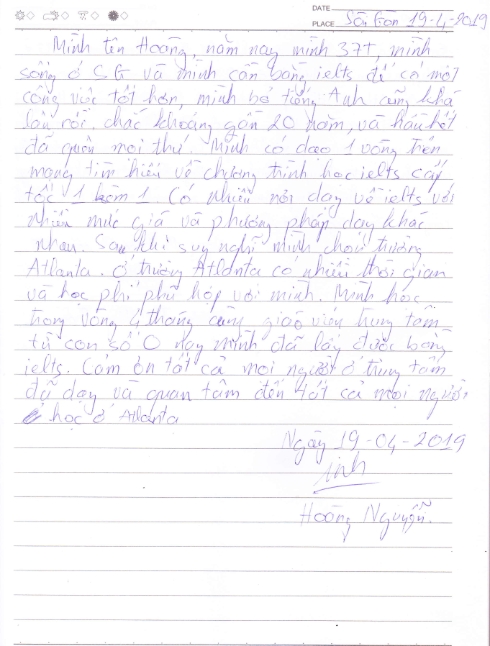 DATE
PLACE Sài Gòn 19-4-2019
Mình tên Hoàng, năm nay mình 37t, mình
sống ở SG và mình cần bằng ielts để có một
công việc tốt hơn, mình bỏ tiếng Anh cũng khá
lâu rồi, chắc khoảng gần 20 năm, và hầu hết
đã quên mọi thứ. Mình có dạo 1 vòng trên
mạng tìm hiểu về chương trình học ielts cấp
tốc 1 kèm 1. Có nhiều nơi dạy về ielts với
nhiều mức giá và phương pháp dạy khác
nhau. Sau khi suy nghĩ mình chọn trường
Atlanta. Ở trường Atlanta có nhiều thời gian
và học phí phù hợp với mình. Mình học
trong vòng 4 tháng cùng giáo viên trung tâm
từ con số 0 nay mình đã lấy được bằng
ielts. Cám ơn tất cả mọi người ở trung tâm
đã dạy và quan tâm đến tất cả mọi người
học ở Atlanta
Ngày 19-04-2019
Hoàng Nguyễn.